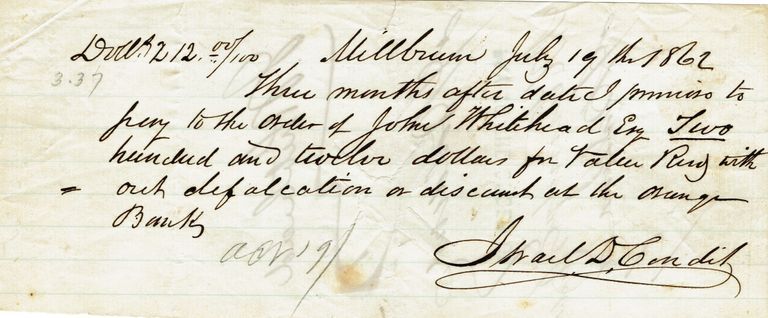 Doll.s 212. 00/100 Millburn July 19th 1862
3.37
Three months after date I promise to
pay to the order of John Whitehead Esq Two
hundred and twelve dollars for Value Recd with
= out defalcation or discount at the Orange
Bank
Oct 19/
Israel D. Condit